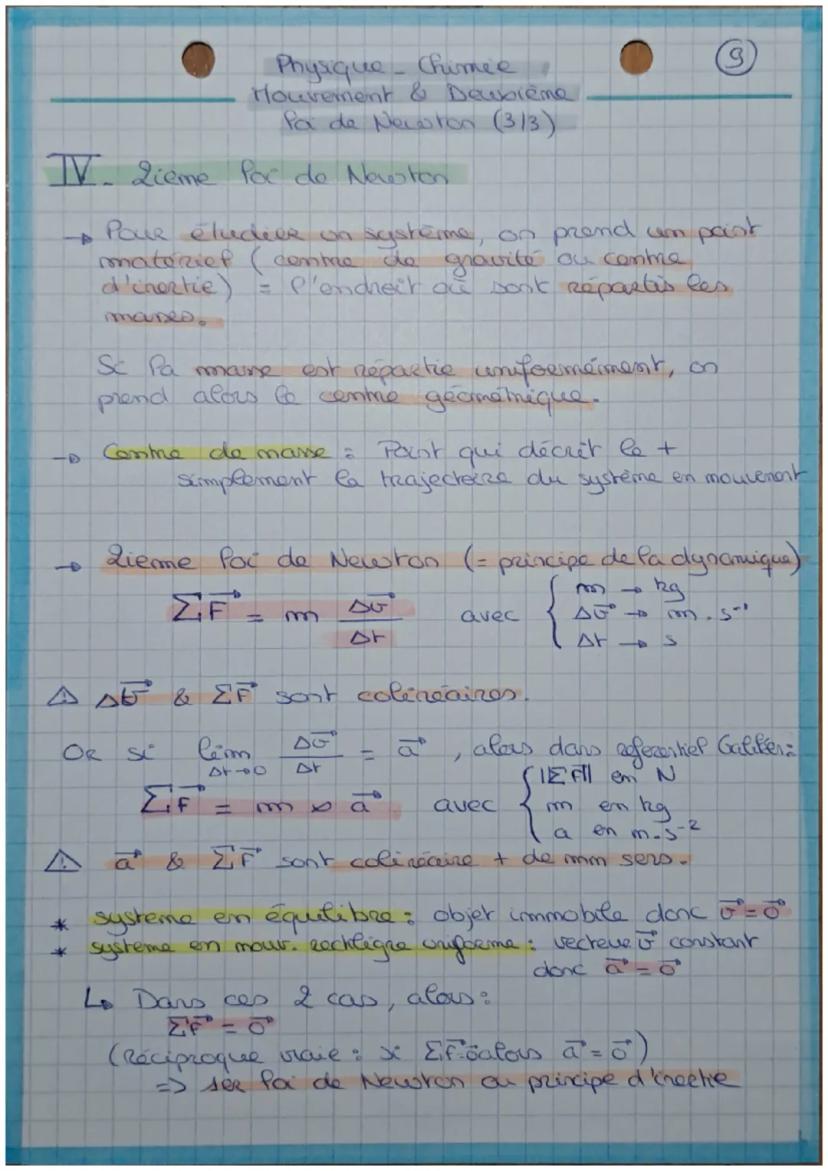 9
Physique - Chimie
Mouvement & Deuxième
loi de Newton (3/3)
IV. 2ième loi de Newton
→ Pour étudier un système, on prend un point
matériel (centre de gravité ou centre
d'inertie) = l'endroit où sont répartis les
masses.
Si la masse est répartie uniformément, on
prend alors le centre géométrique.
→ Centre de masse : Point qui décrit le +
simplement la trajectoire du système en mouvement
→ 2ième loi de Newton (= principe de la dynamique)
ΣF⃗ = m Δv⃗/Δt avec { m → kg
Δv⃗ → m.s⁻¹
Δt → s
⚠ Δv⃗ & ΣF⃗ sont colinéaires.
Or si lim Δt→0 Δv⃗/Δt = a⃗, alors dans referentiel Galiléen:
ΣF⃗ = m × a⃗ avec { ||ΣF⃗|| en N
m en kg
a en m.s⁻²
⚠ a⃗ & ΣF⃗ sont colinéaire + de mm sens.
* système en équilibre : objet immobile donc v⃗=0⃗
* système en mouv. rectiligne uniforme : vecteur v⃗ constant
donc a⃗ = 0⃗
↳ Dans ces 2 cas, alors :
ΣF⃗ = 0⃗
(réciproque vraie : si ΣF⃗=0⃗ alors a⃗ = 0⃗)
=> 1ère loi de Newton ou principe d'inertie